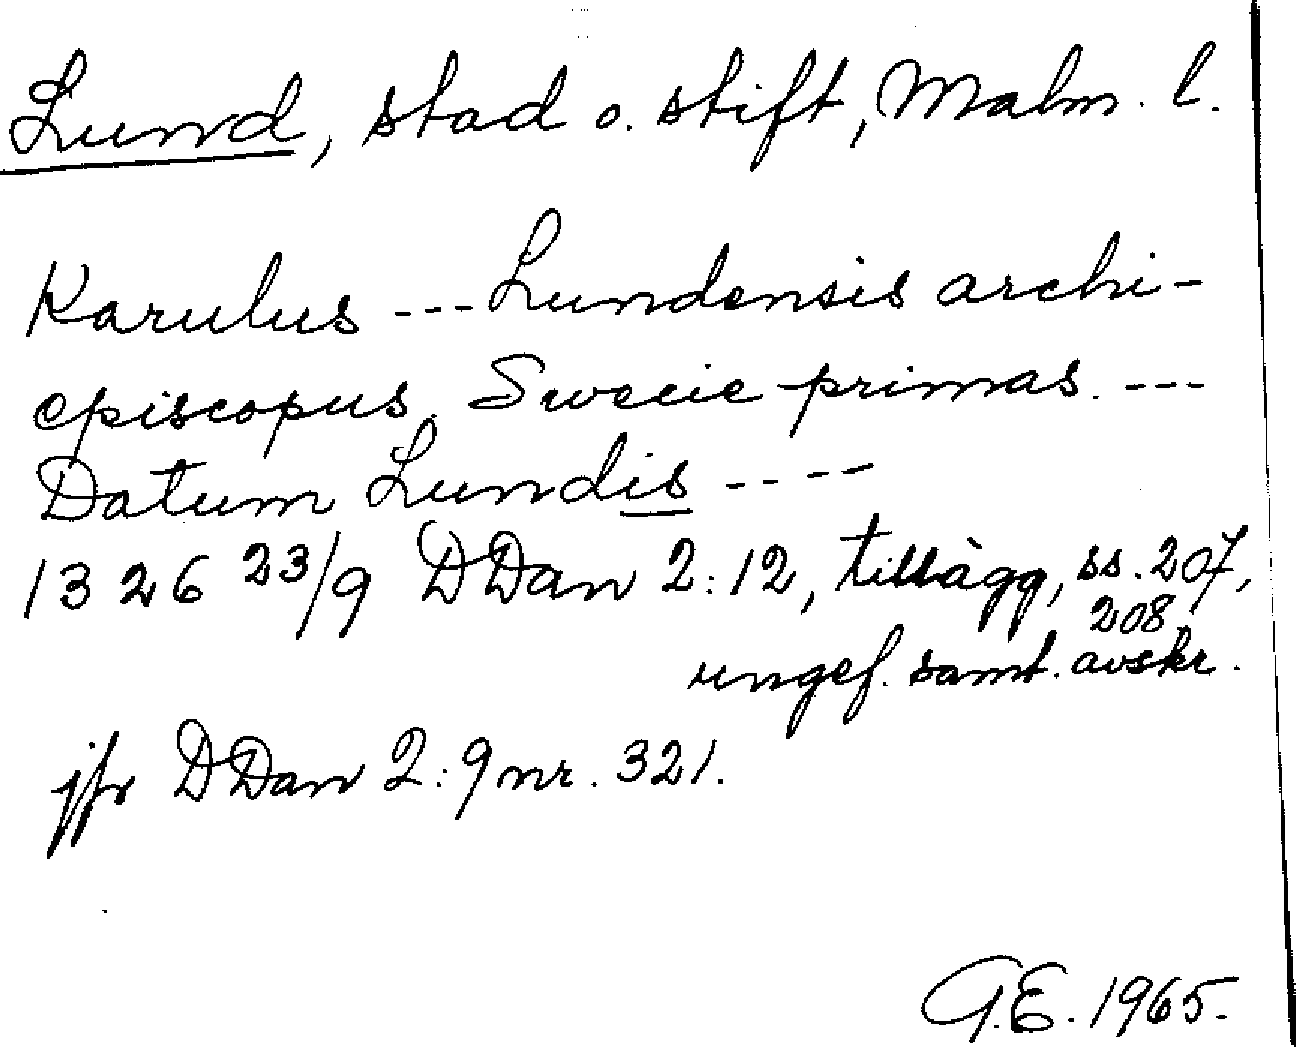 Lund, stad o. stift, Malm. l.
Karulus --- Lundensis archi-
episcopus, Swecie primas. ---
Datum Lundis ----
1326 23/9 DDan 2:12, tillägg, ss. 207,
208,
ungef. samt. avskr.
jfr DDan 2:9 nr. 321.
G.E. 1965.